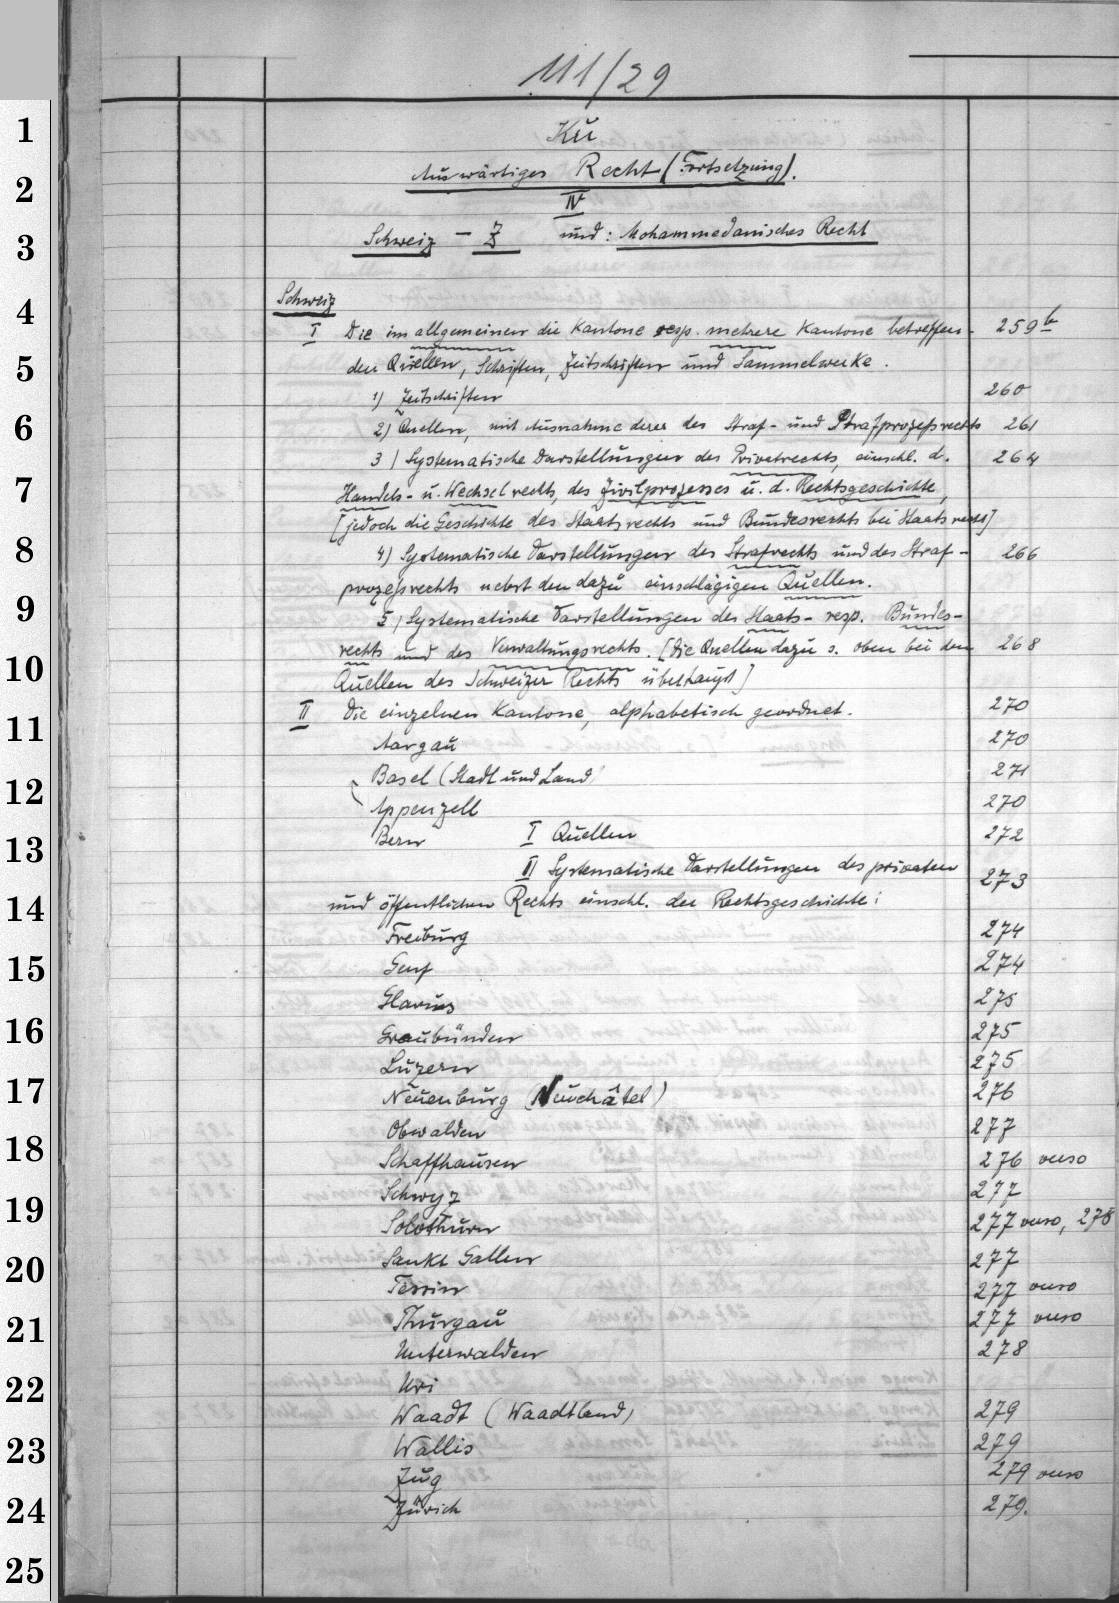 111/29
Ku
Auswärtiges Recht (Fortsetzung).
IV
Schweiz – Z und: Mohammedanisches Recht
Schweiz
I Die im allgemeinen die Kantone resp. mehrere Kantone betreffen- 259b
den Quellen, Schriften, Zeitschriften und Sammelwerke.
1) Zeitschriften 260
2) Quellen, mit Ausnahme derer des Straf- und Strafprozeßrechts 261
3) Systematische Darstellungen des Privatrechts, einschl. d. 264
Handels- u. Wechselrechts, des Zivilprozesses u. d. Rechtsgeschichte,
[jedoch die Geschichte des Staatsrechts und Bundesrechts bei Staatsrecht]
4) Systematische Darstellungen des Strafrechts und des Straf- 266
prozeßrechts nebst den dazu einschlägigen Quellen.
5) Systematische Darstellungen des Staats- resp. Bundes-
rechts und des Verwaltungsrechts. [Die Quellen dazu s. oben bei den 268
Quellen des Schweizer Rechts überhaupt]
II Die einzelnen Kantone, alphabetisch geordnet. 270
Aargau 270
Basel (Stadt und Land) 271
Appenzell 270
Bern I Quellen 272
II Systematische Darstellungen des privaten 273
und öffentlichen Rechts einschl. der Rechtsgeschichte:
Freiburg 274
Genf 274
Glarus 275
Graubünden 275
Luzern 275
Neuenburg (Neuchâtel) 276
Obwalden 277
Schaffhausen 276 verso
Schwyz 277
Solothurn 277 verso, 278
Sankt Gallen 277
Tessin 277 verso
Thurgau 277 verso
Unterwalden 278
Uri
Waadt (Waadtland) 279
Wallis 279
Zug 279 verso
Zürich 279.
1
2
3
4
5
6
7
8
9
10
11
12
13
14
15
16
17
18
19
20
21
22
23
24
25